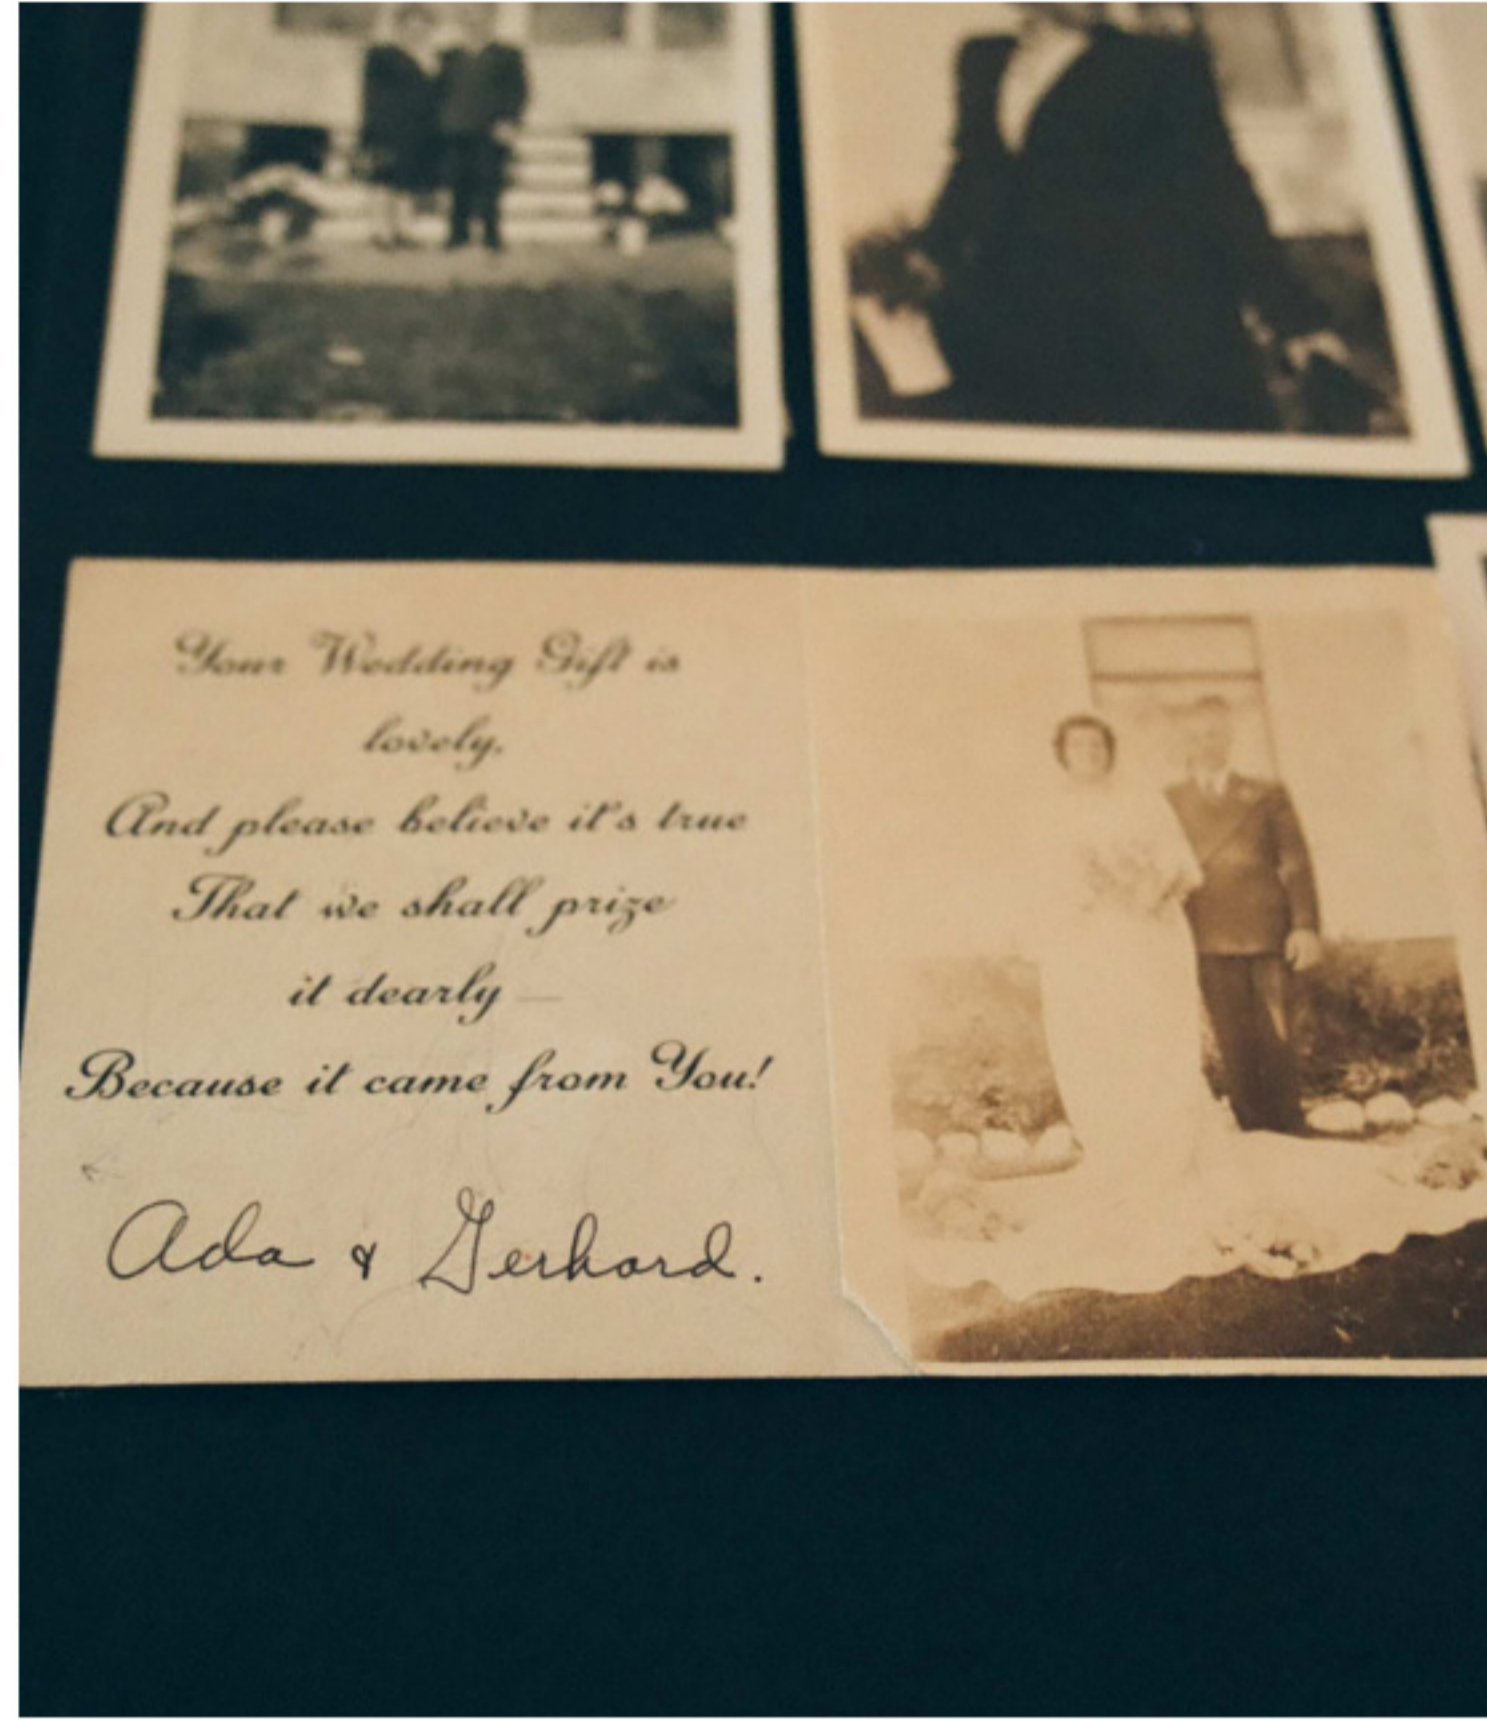 Your Wedding Gift is
lovely.
And please believe it's true
That we shall prize
it dearly —
Because it came from You!
Ada & Gerhard.